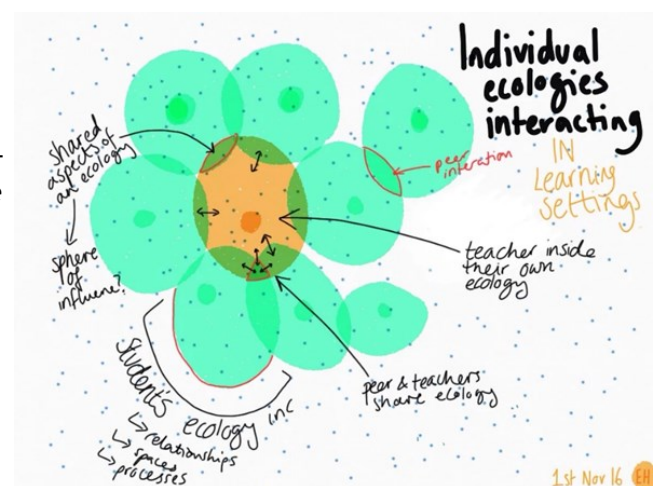 Individual
ecologies
interacting
IN
Learning
settings
shared
aspects of
an ecology
↓
sphere
of
influene?
peer
interation
teacher inside
their own
ecology
peer & teachers
share ecology
Student's ecology inc
↳ relationships
↳ spaces
↳ processes
1st Nov 16 EH